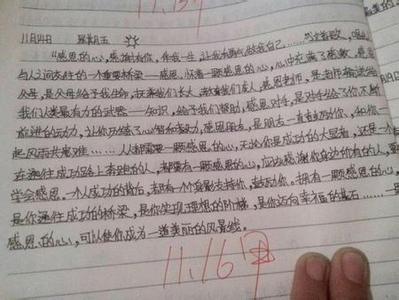 11.15
11月14日 星期五
"感恩的心,感谢有你,伴我一生,让我有勇气做我自己……"当这首歌,
与人之间交往的一个重要桥梁——感恩。怀着一颗感恩的心,心中充满了感激。感恩
父母,是父母给予我生命,抚养我们长大,感恩老师,是老师
我们人类最有力的武器——知识,给予我们帮助,感恩对手,是对手给了你不断
前进的动力,让你历练了心智和毅力,感恩朋友,是朋友一直鼓励你、和你一
起风雨共患难……人人都需要一颗感恩的心,无论你是成功的大显者,还是一个
在通往成功路上奔跑的人,都需有一颗感恩的心,应该感谢你身边所有的人,要
学会感恩。一个人成功的背后,都有一个身影支持你、鼓励你。拥有一颗感恩的心,
是你通往成功的桥梁,是你实现理想的阶梯,是你迈向幸福的基石……一
感恩的心,可以使你成为一道美丽的风景线。
11.16